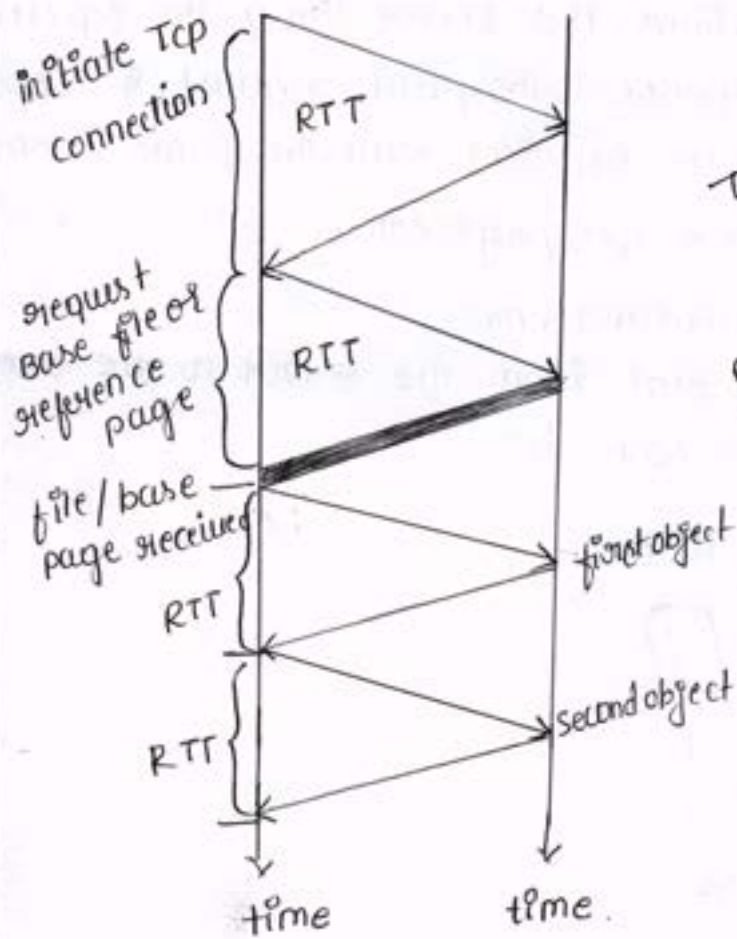 initiate TCP
connection
RTT
request
Base file or
reference
page
RTT
file/base
page received
RTT
first object
RTT
second object
time
time.